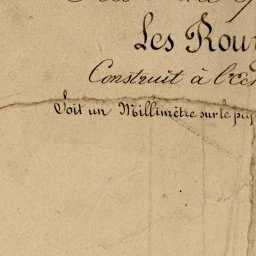 Les Rour
Construit à l'Ec
Soit un Millimètre sur le pi